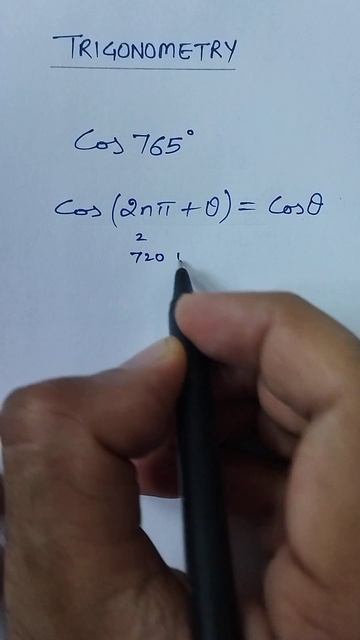 TRIGONOMETRY
Cos 765°
Cos (2nπ + θ) = Cosθ
2
720